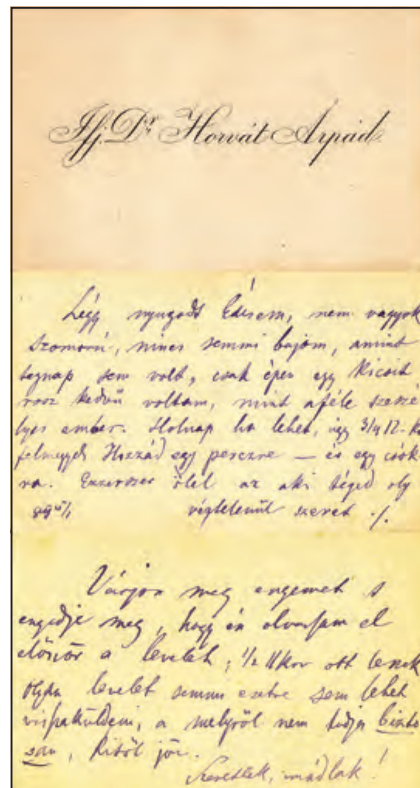 Ifj. Dr Horvát Árpád
Légy nyugodt Édesem, nem vagyok
szomorú, nincs semmi bajom, amint
tegnap sem volt, csak épen egy kicsit
rosz kedvű voltam, mint aféle szesze
lyes ember. Holnap ha lehet, úgy 3/4 12-k
felmegyek Hozzád egy perczre — és egy csók
ra. Ezerszer ölel az aki téged oly
végtelenül szeret ./.
Várjon meg engemet s
engedje meg, hogy én olvassam el
először a levelet; 1/2 11kor ott leszek
olyan levelet semmi esetre sem lehet
visszaküldeni, a melyről nem tudja bizto
san, kitől jön.
Szeretlek, imádlak!